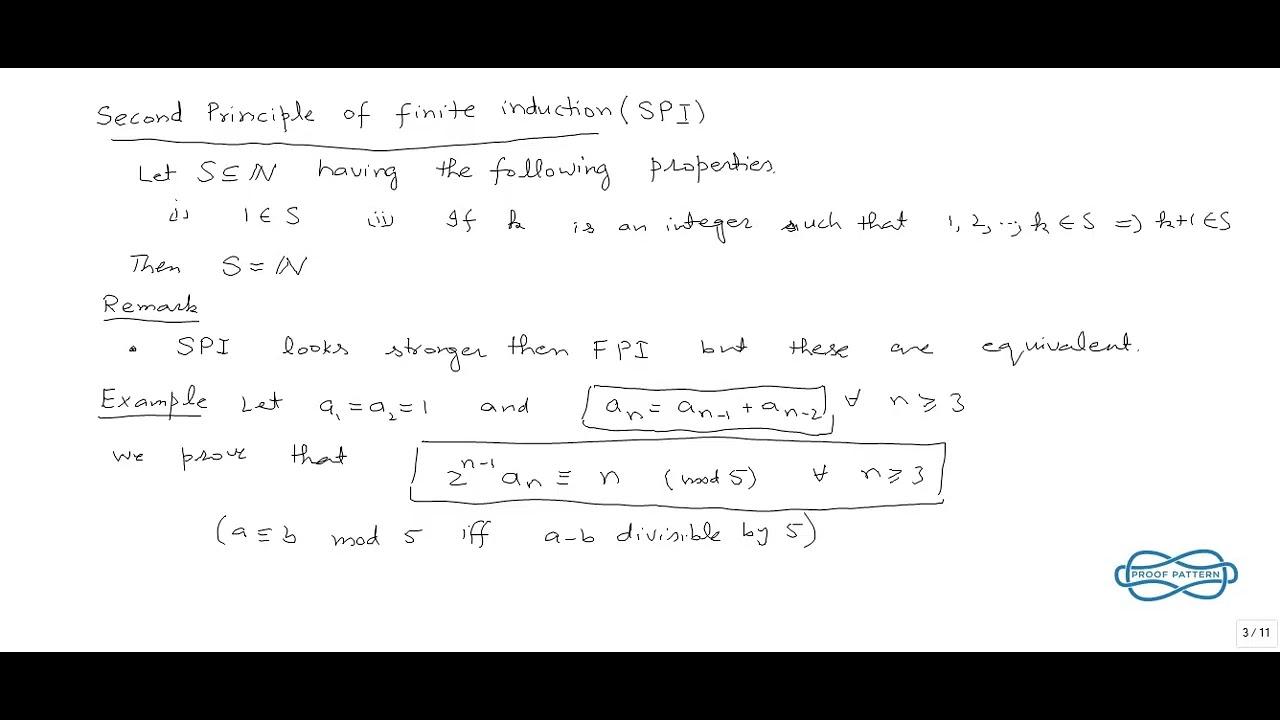 Second Principle of finite induction (SPI)
Let S ⊆ ℕ having the following properties.
i) 1 ∈ S ii) If k is an integer such that 1, 2, ..., k ∈ S ⇒ k+1 ∈ S
Then S = ℕ
Remark
• SPI looks stronger then FPI but these are equivalent.
Example Let a₁ = a₂ = 1 and aₙ = aₙ₋₁ + aₙ₋₂ ∀ n ⩾ 3
we prove that 2ⁿ⁻¹ aₙ ≡ n (mod 5) ∀ n ⩾ 3
(a ≡ b mod 5 iff a-b divisible by 5)
PROOF PATTERN
3 / 11